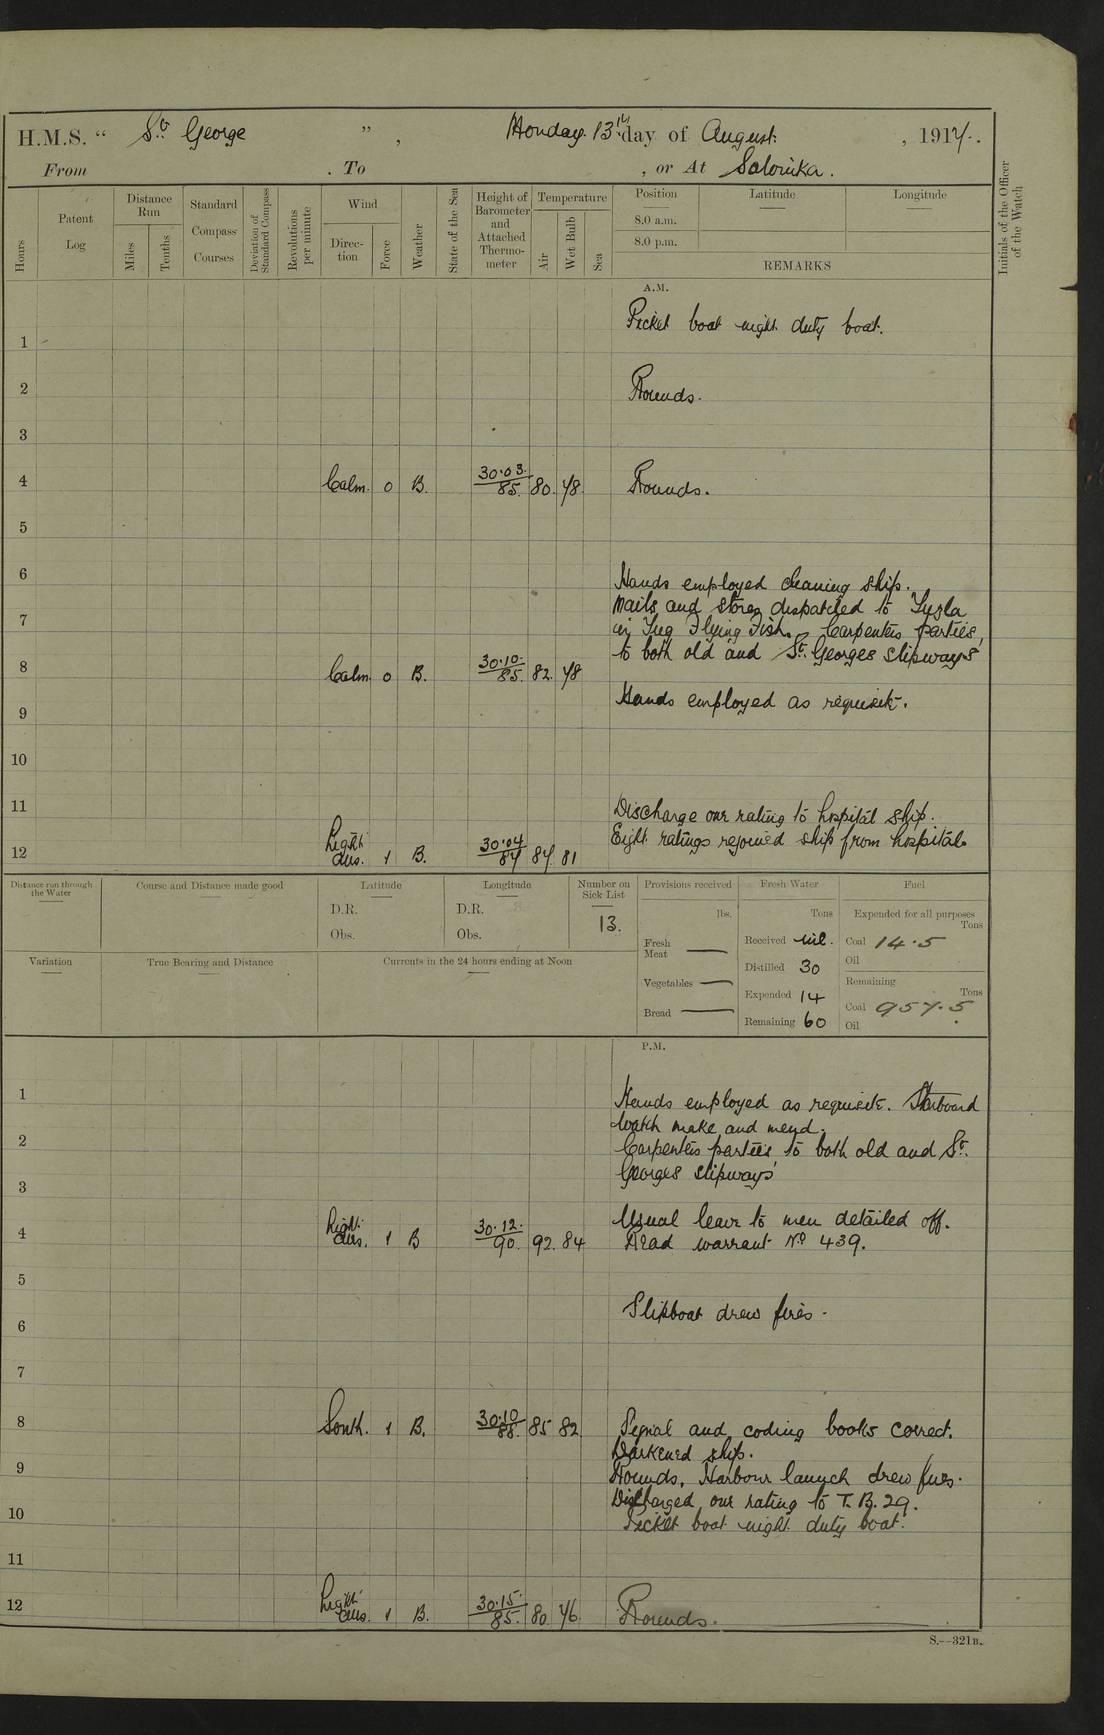 H.M.S. “ St. George ” , Monday 13th day of August , 1917.
From . To , or At Salonika.
Hours
Patent Log
Distance Run
Miles
Tenths
Standard Compass Courses
Deviation of Standard Compass
Revolutions per minute
Wind
Direc-tion
Force
Weather
State of the Sea
Height of Barometer and Attached Thermo-meter
Temperature
Air
Wet Bulb
Sea
Position
8.0 a.m.
8.0 p.m.
Latitude
Longitude
REMARKS
Initials of the Officer of the Watch
A.M.
Picket boat night duty boat.
1
2 Rounds.
3
4 Calm. 0 B. 30.03. 85. 80. 78. Rounds.
5
6 Hands employed cleaning ship.
Mails and stores dispatched to Tuzla
7 in Tug Flying Fish. Carpenters parties,
to both old and St. Georges slipways
8 Calm. 0 B. 30.10. 85. 82. 78
Hands employed as requisite.
9
10
11 Discharge one rating to hospital ship.
Eight ratings rejoined ship from hospital.
12 Light airs. 1 B. 30.04 87 87. 81
Distance run through the Water
Course and Distance made good
Latitude
D.R.
Obs.
Longitude
D.R.
Obs.
Number on Sick List
13.
Provisions received
lbs.
Fresh Meat
Vegetables
Bread
Fresh Water
Tons
Received nil.
Distilled 30
Expended 14
Remaining 60
Fuel
Expended for all purposes
Tons
Coal 14.5
Oil
Remaining
Tons
Coal 957.5
Oil
Variation
True Bearing and Distance
Currents in the 24 hours ending at Noon
P.M.
1 Hands employed as requisite. Starboard
watch make and mend.
2 Carpenters parties to both old and St.
Georges slipways
3
Usual leave to men detailed off.
4 Light airs. 1 B 30.12. 90. 92. 84 Read warrant No 439.
5
Slipboat drew fires.
6
7
8 South. 1 B. 30.10 88. 85 82 Signal and coding books correct.
Darkened ship.
9 Rounds. Harbour launch drew fires.
Discharged one rating to T.B. 29.
10 Picket boat night duty boat.
11
12 Light airs. 1 B. 30.15. 85. 80. 76. Rounds.
S.—321B.